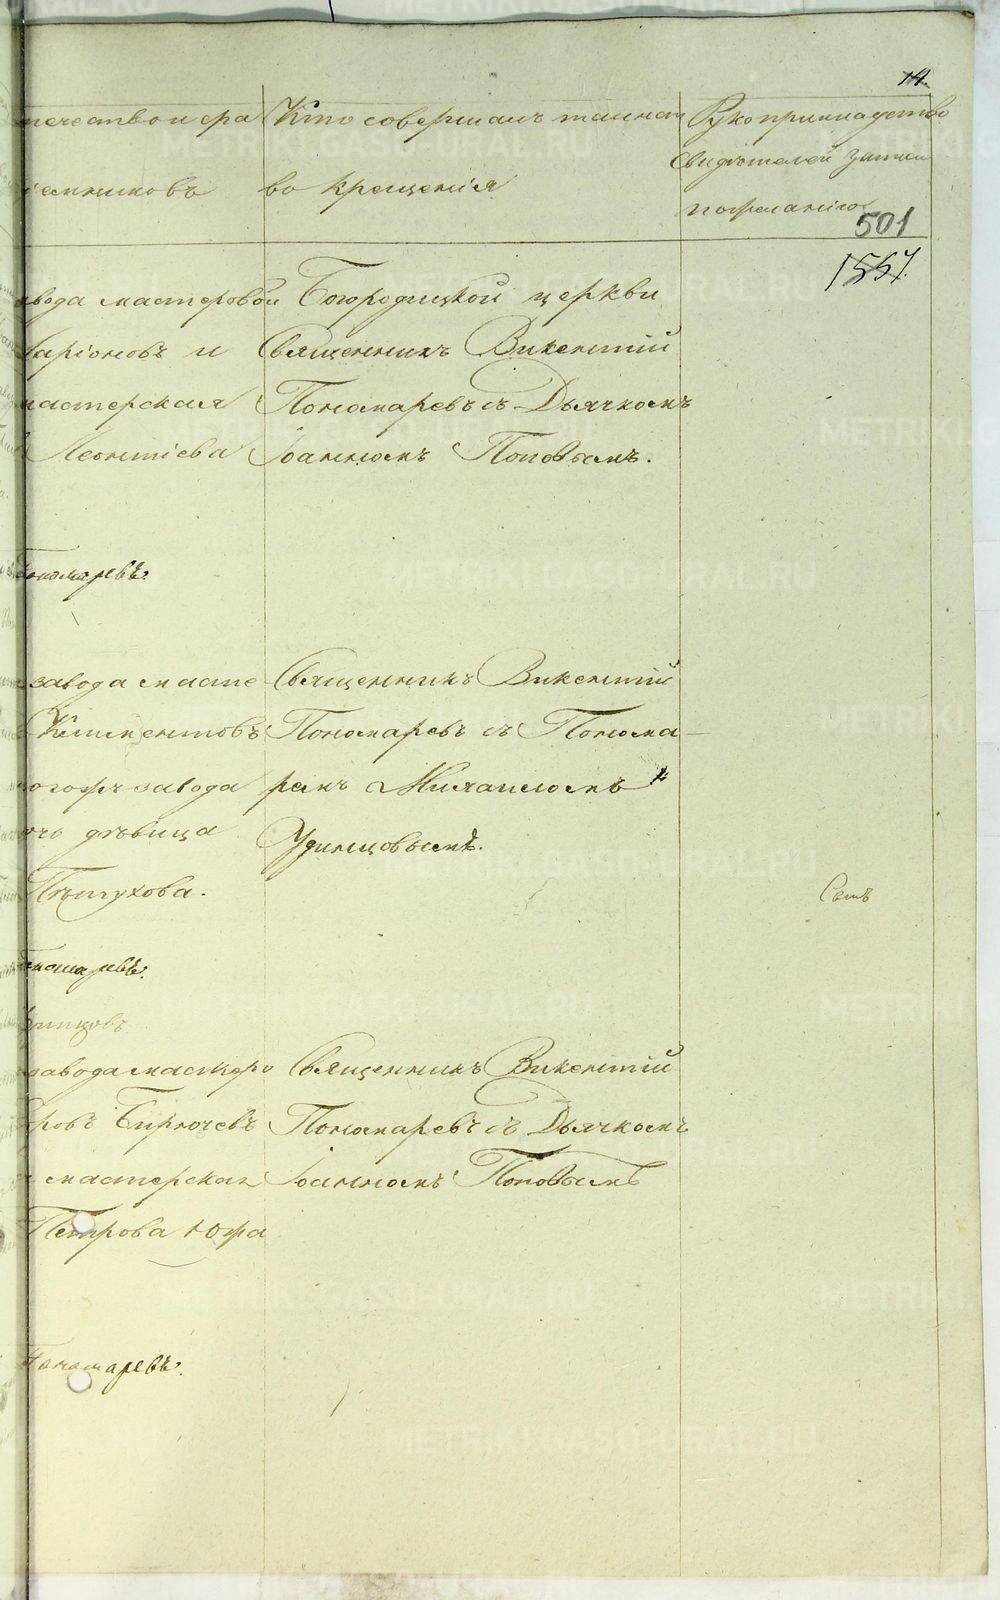 14.
течество и фа
Кто совершалъ таинст
Рукоприкладство
свидѣтелей записи
во крещенія
по желанію
501
1557.
завода мастеровой
Богородицкой церкви
Священникъ Викентій
мастерская
Пономаревъ съ Дьячкомъ
Леонтіева
Іоанномъ Поповымъ.
Пономаревъ.
завода масте
Священникъ Викентій
Климентовъ
Пономаревъ съ Понома-
гожъ завода
ремъ Михаиломъ
дѣвица
Удинцовымъ.
Пѣтухова.
Пономаревъ.
завода мастеро
Священникъ Викентій
Бирючевъ
Пономаревъ съ Дьячкомъ
мастерская
Іоанномъ Поповымъ
Петрова
Пономаревъ.
METRIKI.GASO-URAL.RU